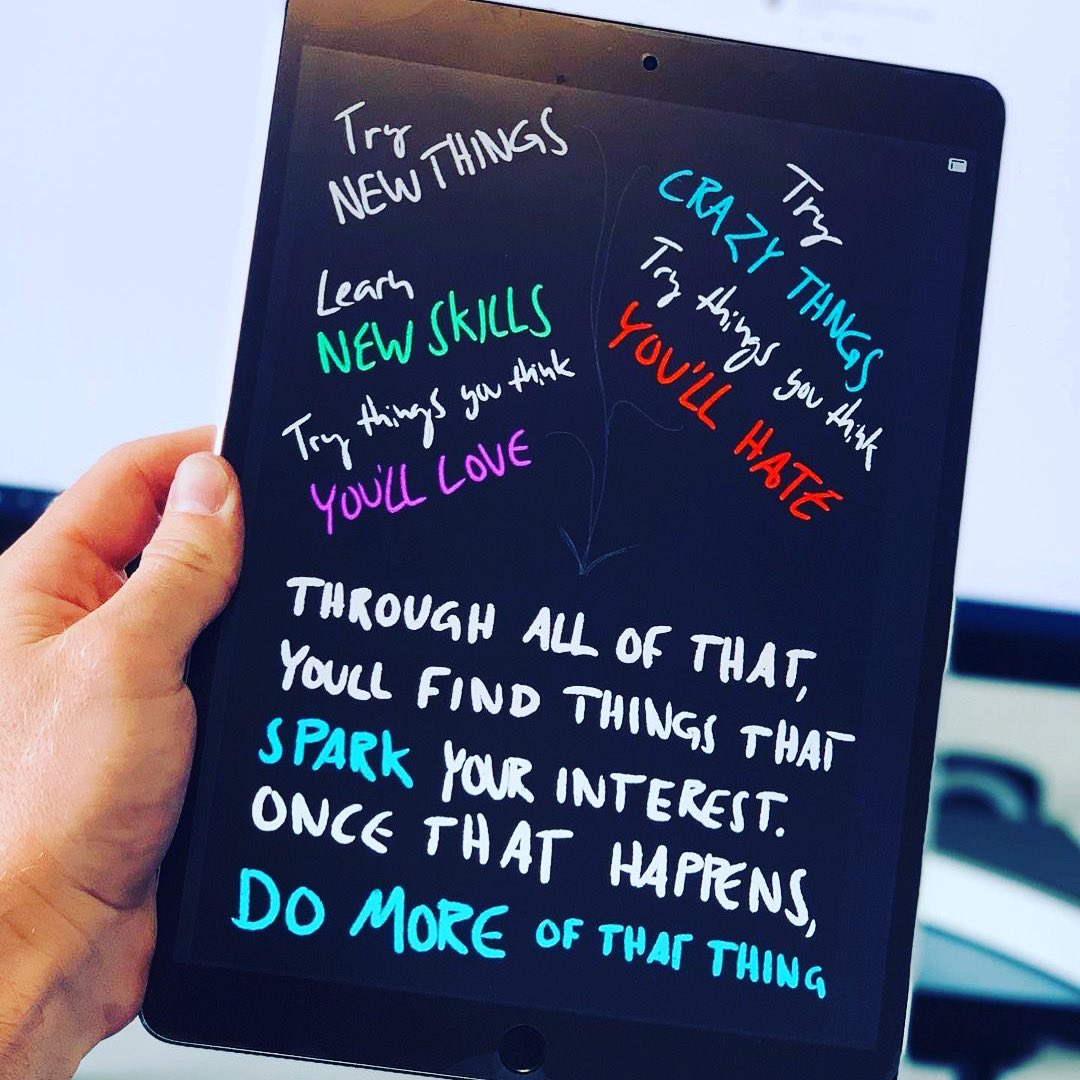 Try
NEW THINGS
Learn
NEW SKILLS
Try things you think
YOU'LL LOVE
Try
CRAZY THNGS
Try things you think
YOU'LL HATE
THROUGH ALL OF THAT,
YOULL FIND THINGS THAT
SPARK YOUR INTEREST.
ONCE THAT HAPPENS,
DO MORE OF THAT THING